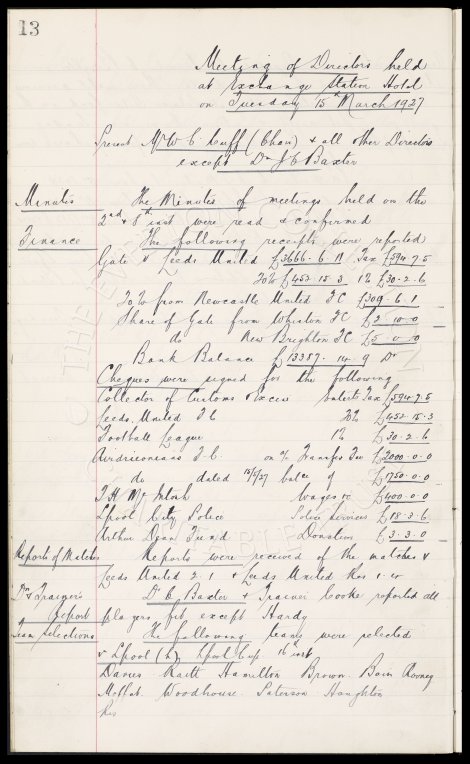 13
Meeting of Directors held
at Exchange Station Hotel
on Tuesday 15th March 1927
Present Mr W C Cuff (Chair) & all other Directors
except Dr J C Baxter
Minutes The Minutes of meetings held on the
2nd & 8th inst were read & confirmed
Finance The following receipts were reported
Gate v Leeds United £3666.6.11 Tax £594.7.5
20% £452.15.3 1% £30.2.6
20% from Newcastle United FC £309.6.1
Share of Gate from Whiston FC £2.10.0
do New Brighton FC £5.0.10
Bank Balance £13387.14.9 Dr
Cheques were signed for the following
Collector of Customs & Excise Entert Tax £594.7.5
Leeds United FC 20% £452.15.3
Football League 1% £30.2.6
Airdrieonians F.C. on a/c Transfer Fee £2000.0.0
do dated balce of £1750.0.0
T.H. McIntosh Wages &c £400.0.0
Lpool City Police Police Services £18.3.6
Arthur Fund Donation £3.3.0
Reports of Matches Reports were received of the matches v
Leeds United 2.1 & Leeds United Res
Dr & Trainer's Report Dr C. Baxter & Trainer Cooke reported all
players fit except Hardy
Team Selections The following teams were selected
v Lpool (h) Lpool Cup 16 inst
Davies Raitt Hamilton Brown Bain Rooney
Moffat Woodhouse Paterson Houghton
Res